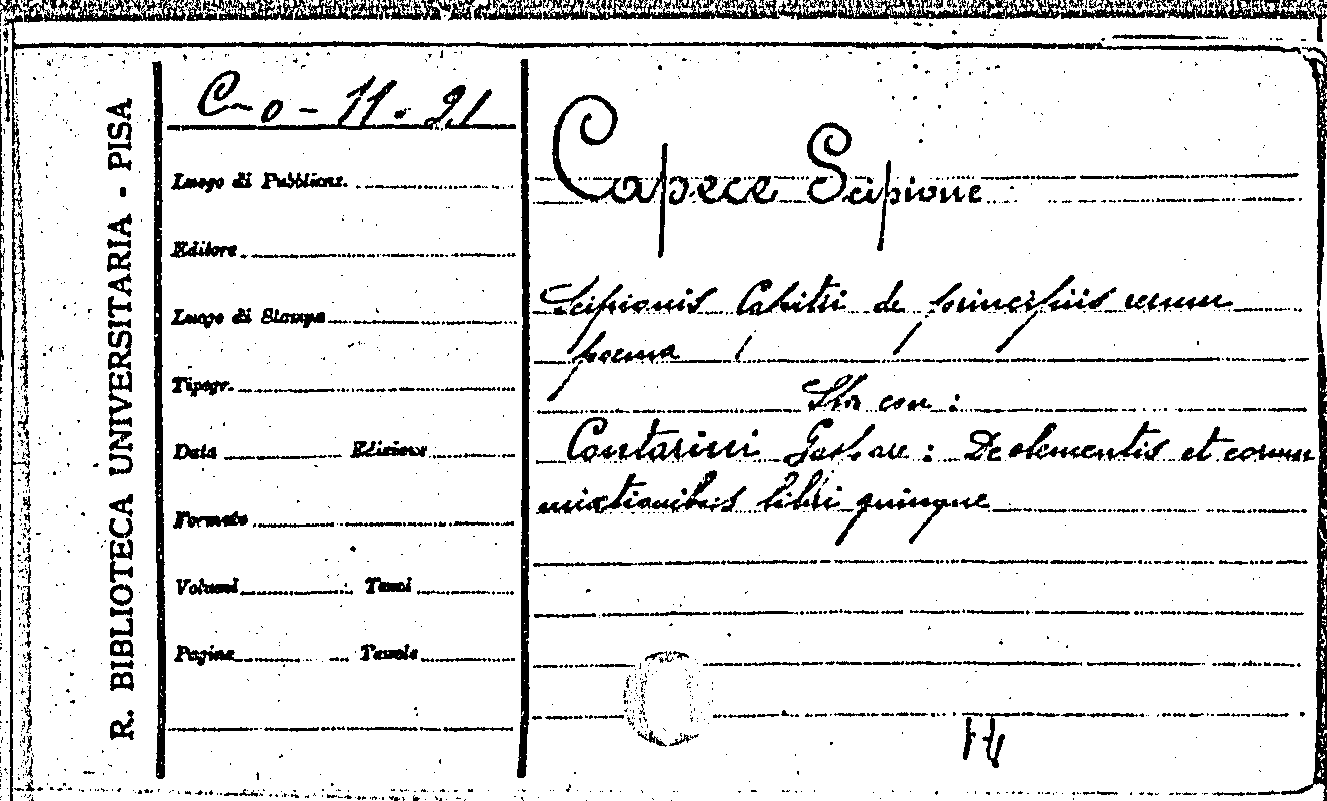 R. BIBLIOTECA UNIVERSITARIA - PISA
C-o-11.21
Luogo di Pubblicaz.
Editore
Luogo di Stampa
Tipogr.
Data Edizione
Formato
Volumi Tomi
Pagine Tavole
Capece Scipione
Scipionis Capitii de principiis rerum
poema
Sta con:
Contarini Gaspare: De elementis et eorum
mixtionibus libri quinque